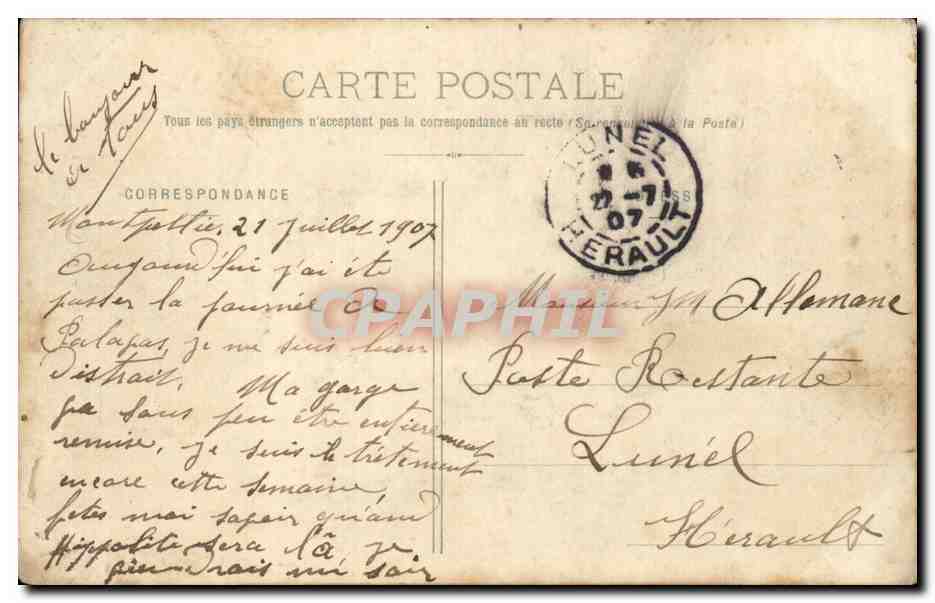 le bonjour
à tous
CARTE POSTALE
Tous les pays étrangers n'acceptent pas la correspondance au recto (Se à la Poste)
CORRESPONDANCE
LUNEL
22 -7
07
HERAULT
Montpellie, 21 Juillet 1907
Aujourd'hui j'ai été
passer la journée de
Palapas, je me suis bien
distrait. Ma gorge
ça sans peu être entierement
remise, je suis le trétement
encore cette semaine,
fetes moi sapoir quand
Hippolite sera là, je
viendrais un soir
CPAPHIL
Monsieur JM Allemane
Poste Restante
Lunél
Hérault